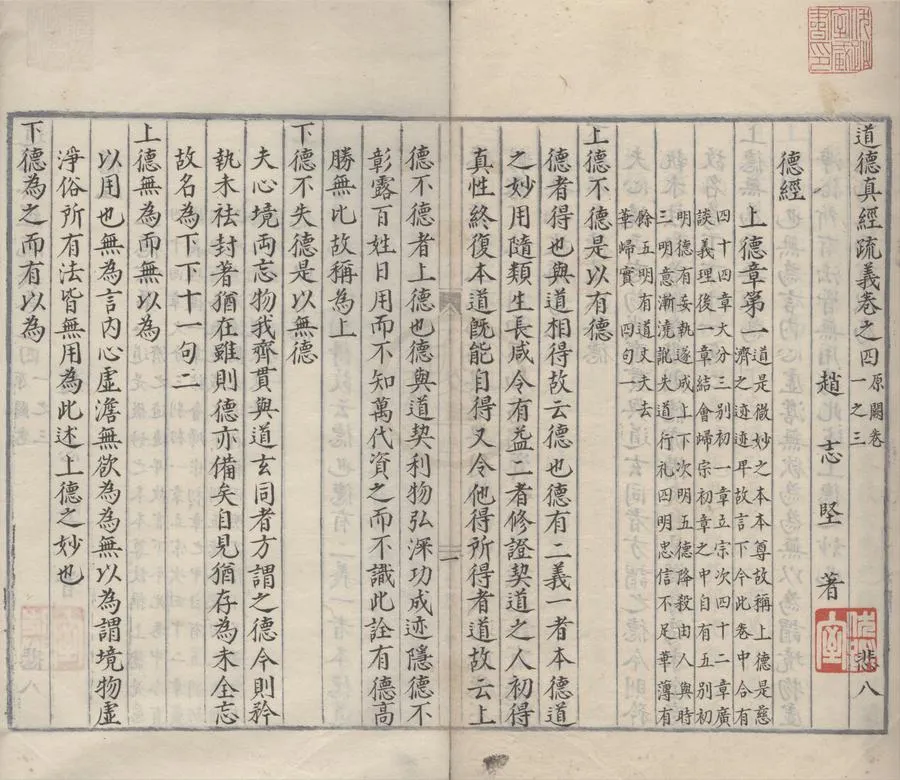 道德真經疏義卷之四
原闕卷
一之三
悲八
趙志堅著
德經
上德章第一
道是微妙之本本尊故稱上德是慈
濟之迹迹卑故言下今此卷中合有
四十四章大分三別初一章立宗次四十二章廣
談義理後一章結會歸宗初章之中自有五別初
明德有妄執遂成上下次明五德降殺由人與時
三明意漸澆失道行礼四明忠信不足華薄有
餘五明有道丈夫去
華歸實 四句一
上德不德是以有德
德者得也與道相得故云德也德有二義一者本德道
之妙用隨類生長咸令有益二者修證契道之人初得
真性終復本道旣能自得又令他得所得者道故云上
德不德者上德也德與道契利物弘深功成迹隱德不
彰露百姓日用而不知萬代資之而不識此詮有德高
勝無比故稱為上
下德不失德是以無德
夫心境両忘物我齊貫與道玄同者方謂之德今則矜
執未祛封著猶在雖則德亦備矣自見猶存為未全忘
故名為下下十一句二
上德無為而無以為
以用也無為言內心虛澹無欲為為無以為謂境物虛
淨俗所有法皆無用為此述上德之妙也
下德為之而有以為
一